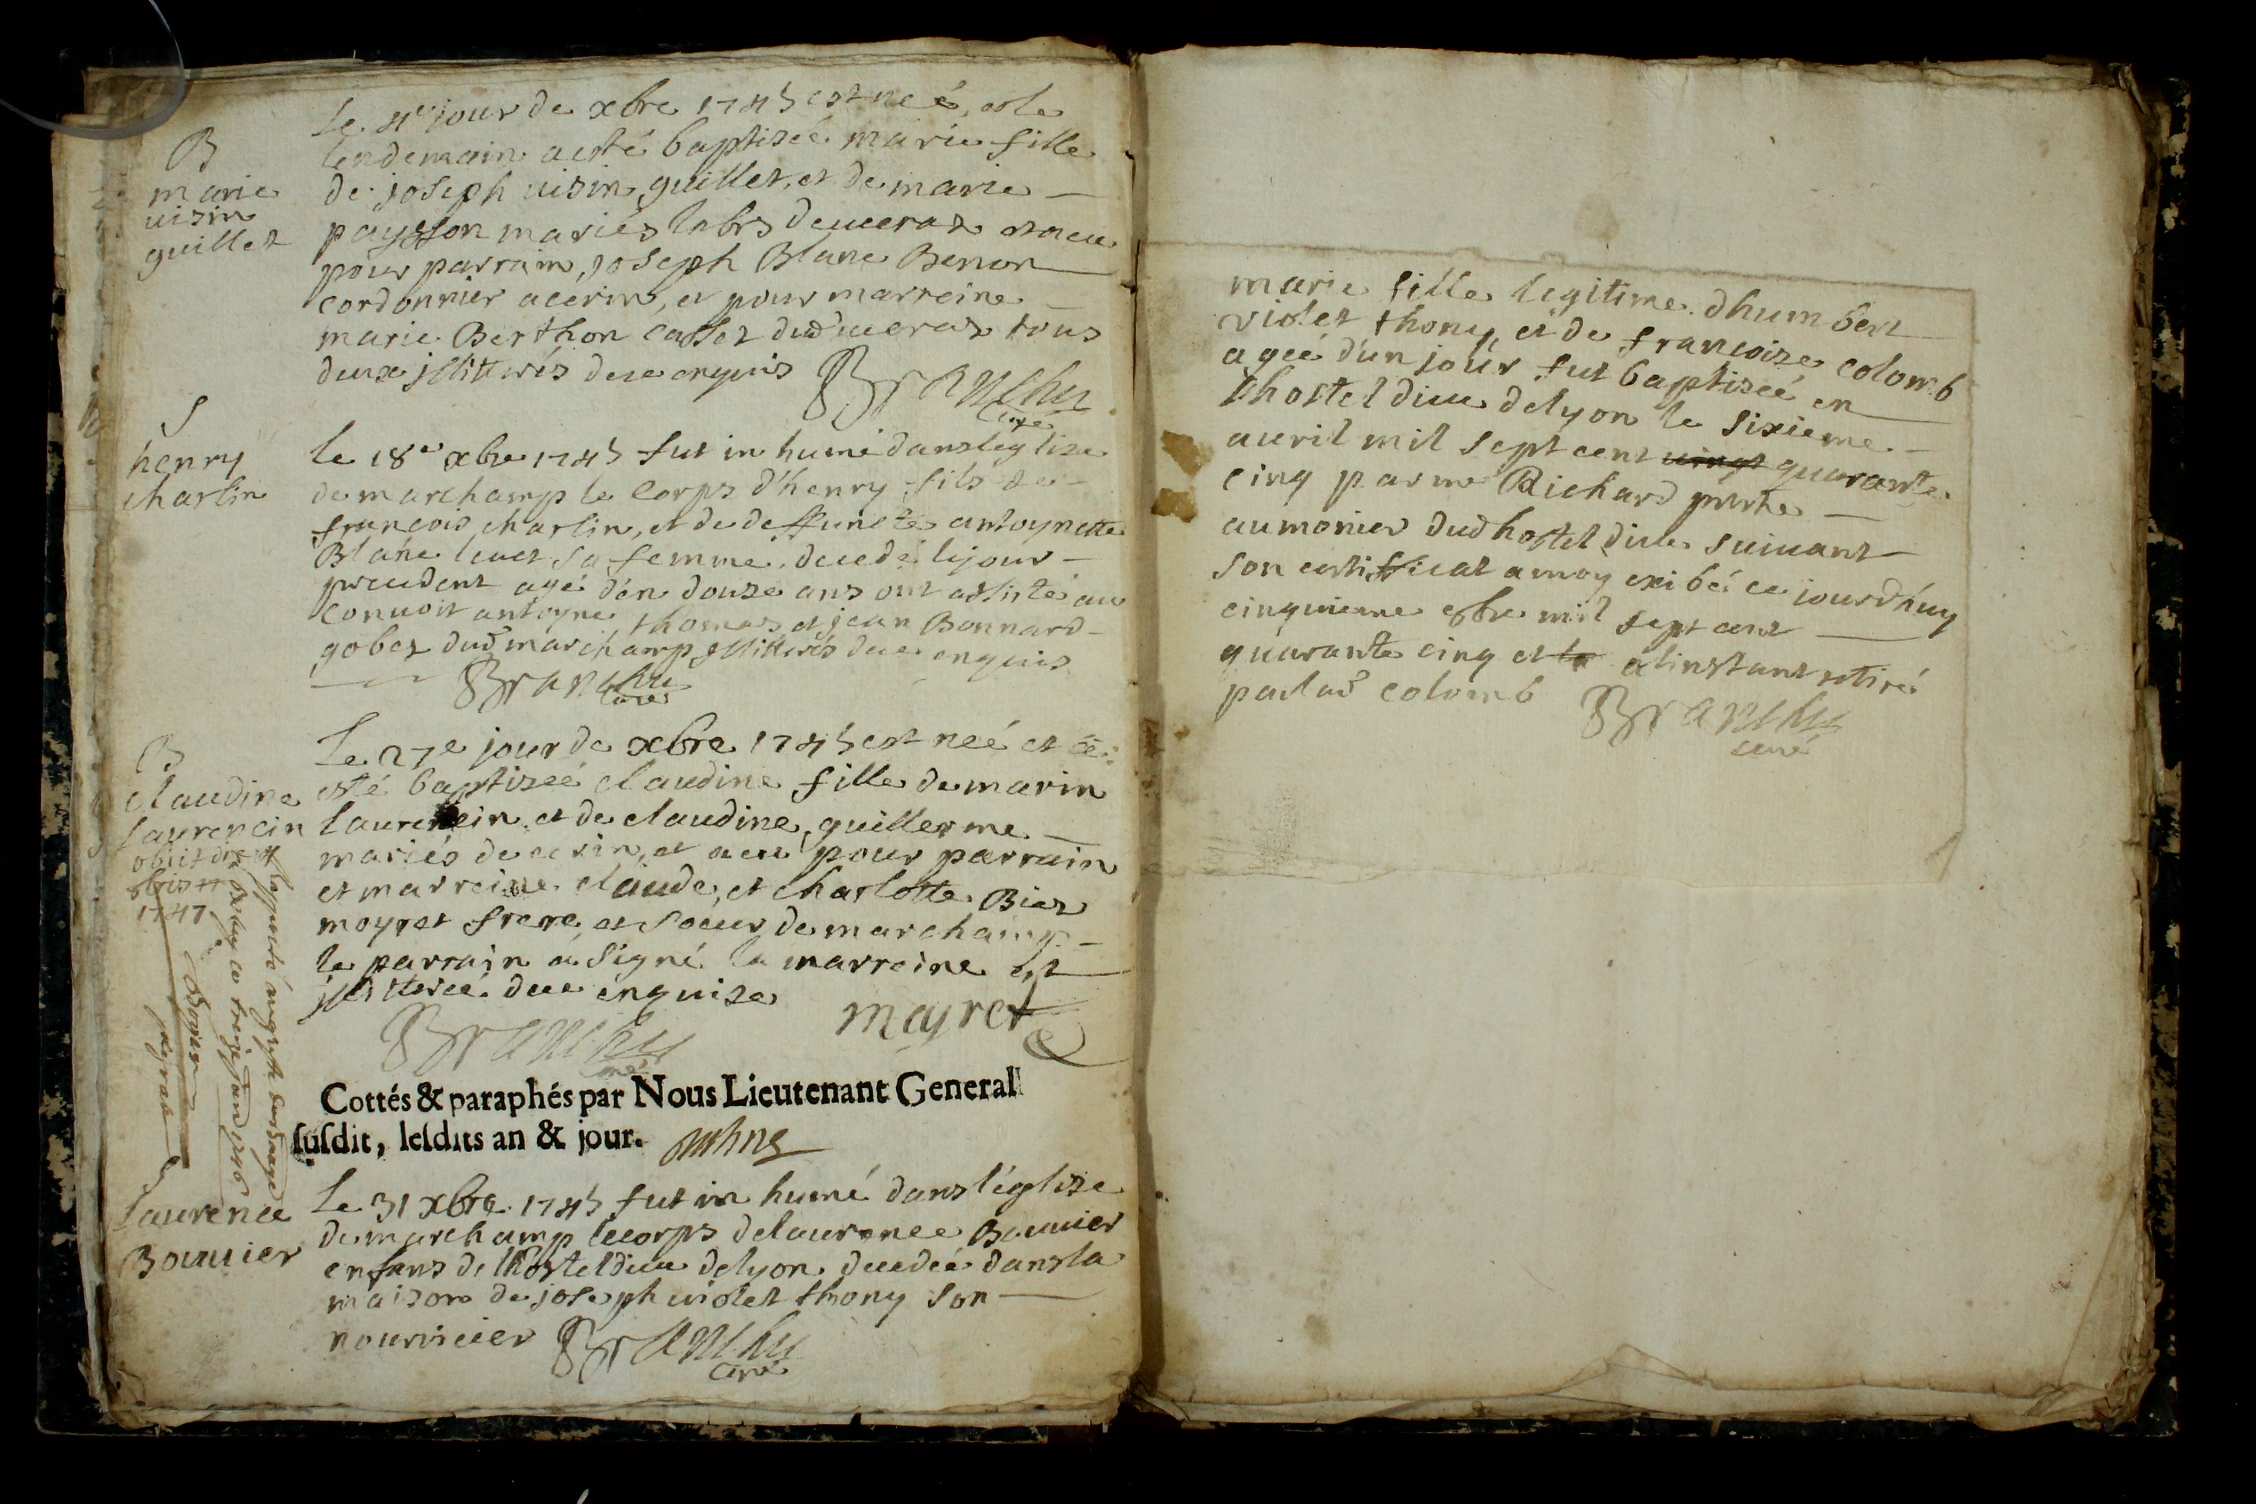 B
marie
uisin
guillet
Le 4e jour de xbre 1745 est neé, et le
lendemain a esté baptiseé marie fille
de joseph uisin guillet, et de marie
paysson mariés labrs de ueraz et a eu
pour parrain, joseph Blanc Benon
cordonnier a cérin, et pour marreine
marie Berthon casset dud ueraz tous
deux jllitterés de ce enquis
Branchu
curé
S
henry
charlin
le 18e xbre 1745 fut in humé dans leglise
de marchamp le Corps d'henry fils de
francois charlin, et de deffuncte antoynette
Blanc leuet sa femme, decedé le jour
precedent agé d'en douze ans ont assisté au
conuoit antoyne thomas et jean Bonnard
gobet dud marchamp jllitterés de ce enquis
Branchu
curé
B
claudine
laurencin
obiit die
8bris
1747
Le 27e jour de xbre 1745 est neé et a
esté baptiseé claudine fille de marin
laurencin et de claudine guillerme
mariés de cerin, et a eu pour parrain
et marreine claude, et charlotte Biez
meyret frere, et soeur de marchamp
le parrain a signé la marreine est
jllitereé de ce enquize
Branchu
curé
meyret
Cottés & paraphés par Nous Lieutenant General
susdit, lesdits an & jour.
S
Laurence
Bouuier
Le 31 xbre 1745 fut in humé dans l'église
de marchamp le corps de laurence Bouuier
enfans de lhosteldieu de lyon decedeé dans la
maison de joseph uiolet thony son
nourricier
Branchu
curé
marie fille legitime d'humbert
violet thony, et de francoise colomb
ageé d'un jour fut baptiseé en
l'hostel dieu de lyon le sixieme
auril mil sept cent uingt quarante
cinq par mr Richard prêtre
aumonier dud hostel dieu suiuant
son certifficat a moy exibé ce jourd'huy
cinquieme 8bre mil sept cent
quarante cinq et la a linstant retiré
par lad colomb
Branchu
curé